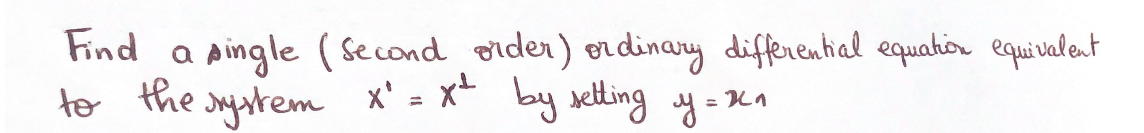 Find a single (second order) ordinary differential equation equivalent
to the system x' = x^⊥ by setting y = x1